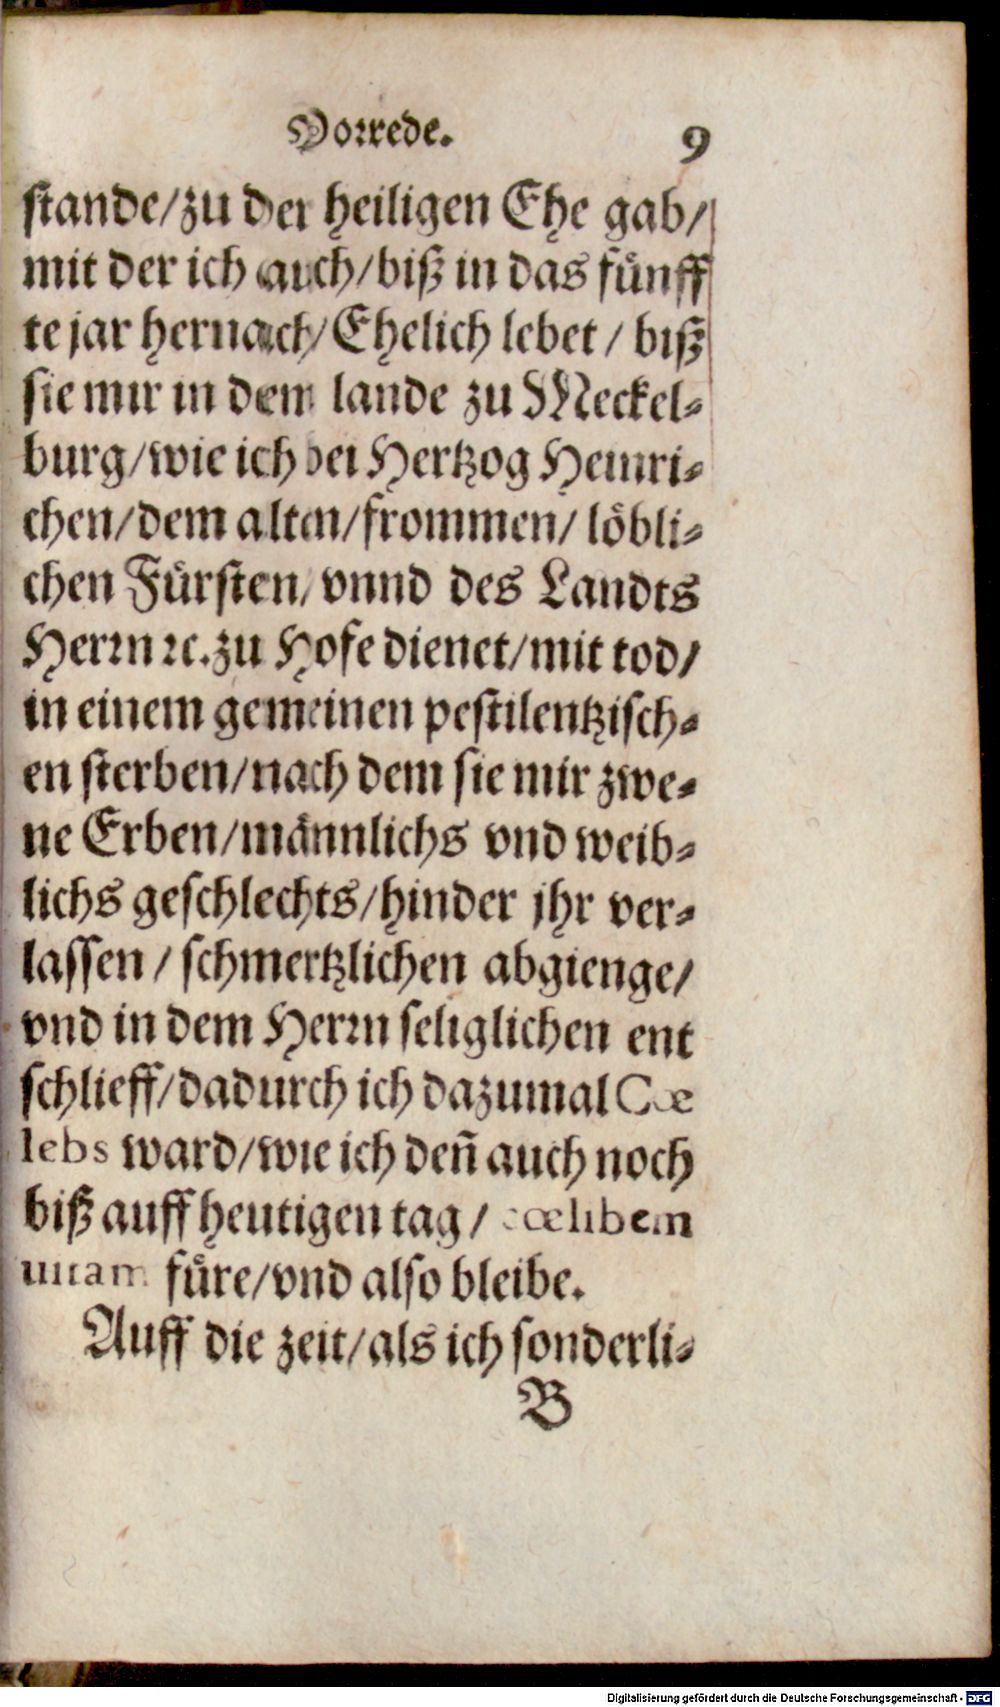 Vorrede. 9
stande/zu der heiligen Ehe gab/
mit der ich auch/biß in das fünff
te jar hernach/Ehelich lebet / biß
sie mir in dem lande zu Meckel-
burg/wie ich bei Hertzog Heinri-
chen/dem alten/frommen/ löbli-
chen Fürsten/vnnd des Landts
Herrn ꝛc.zu Hofe dienet/mit tod/
in einem gemeinen pestilentzisch-
en sterben/nach dem sie mir zwe-
ne Erben/männlichs vnd weib-
lichs geschlechts/hinder jhr ver-
lassen / schmertzlichen abgienge/
vnd in dem Herrn seliglichen ent
schlieff/dadurch ich dazumal Cœ
lebs ward/wie ich deñ auch noch
biß auff heutigen tag / cœlibem
uitam füre/vnd also bleibe.
Auff die zeit/als ich sonderli-
B
Digitalisierung gefördert durch die Deutsche Forschungsgemeinschaft - DFG